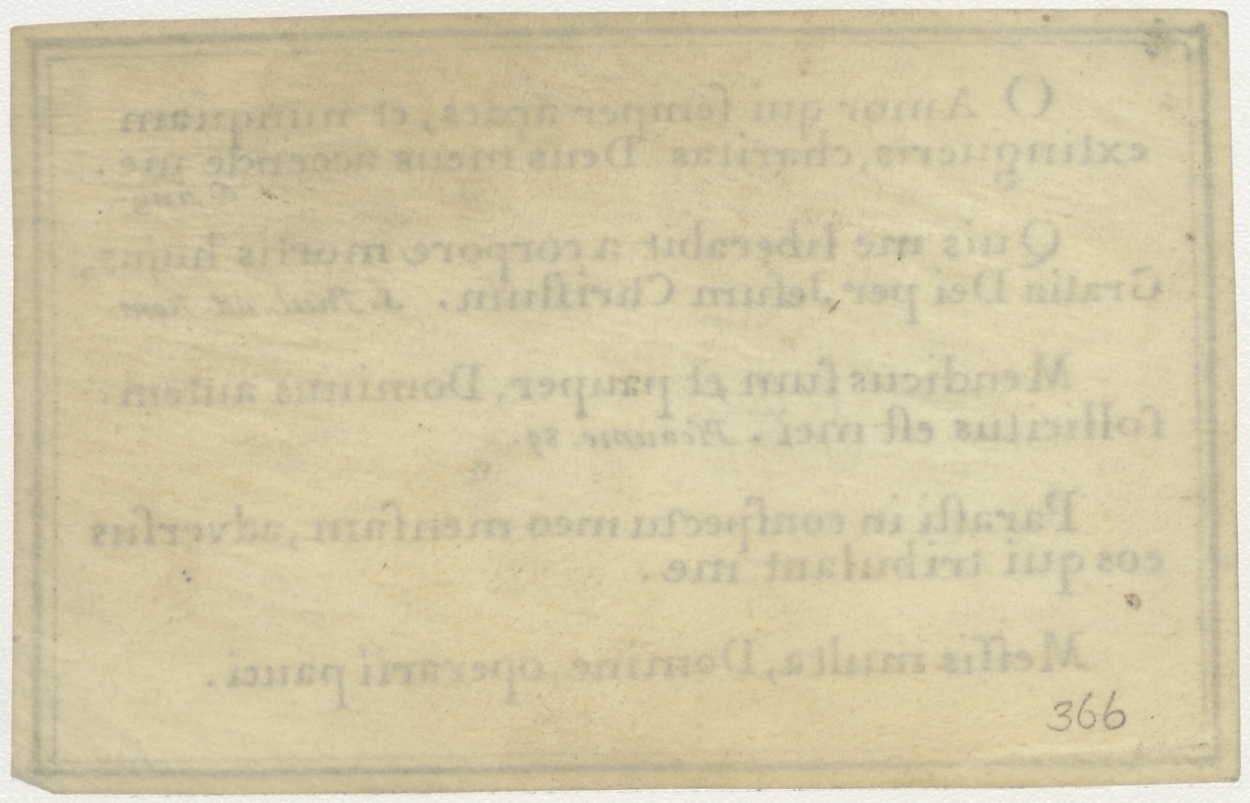 O Amor qui ſemper ardes, et nunquam
extingueris, charitas Deus meus accende me.
S. Aug.
Quis me liberabit a corpore mortis hujus,
Gratia Dei per Jeſum Chriſtum. S. Paul. ad Rom
Mendicus ſum et pauper, Dominus autem
ſollicitus eſt mei. 39.
Paraſti in conſpectu meo menſam, adverſus
eos qui tribulant me.
Meſſis multa, Domine, operarii pauci.
366